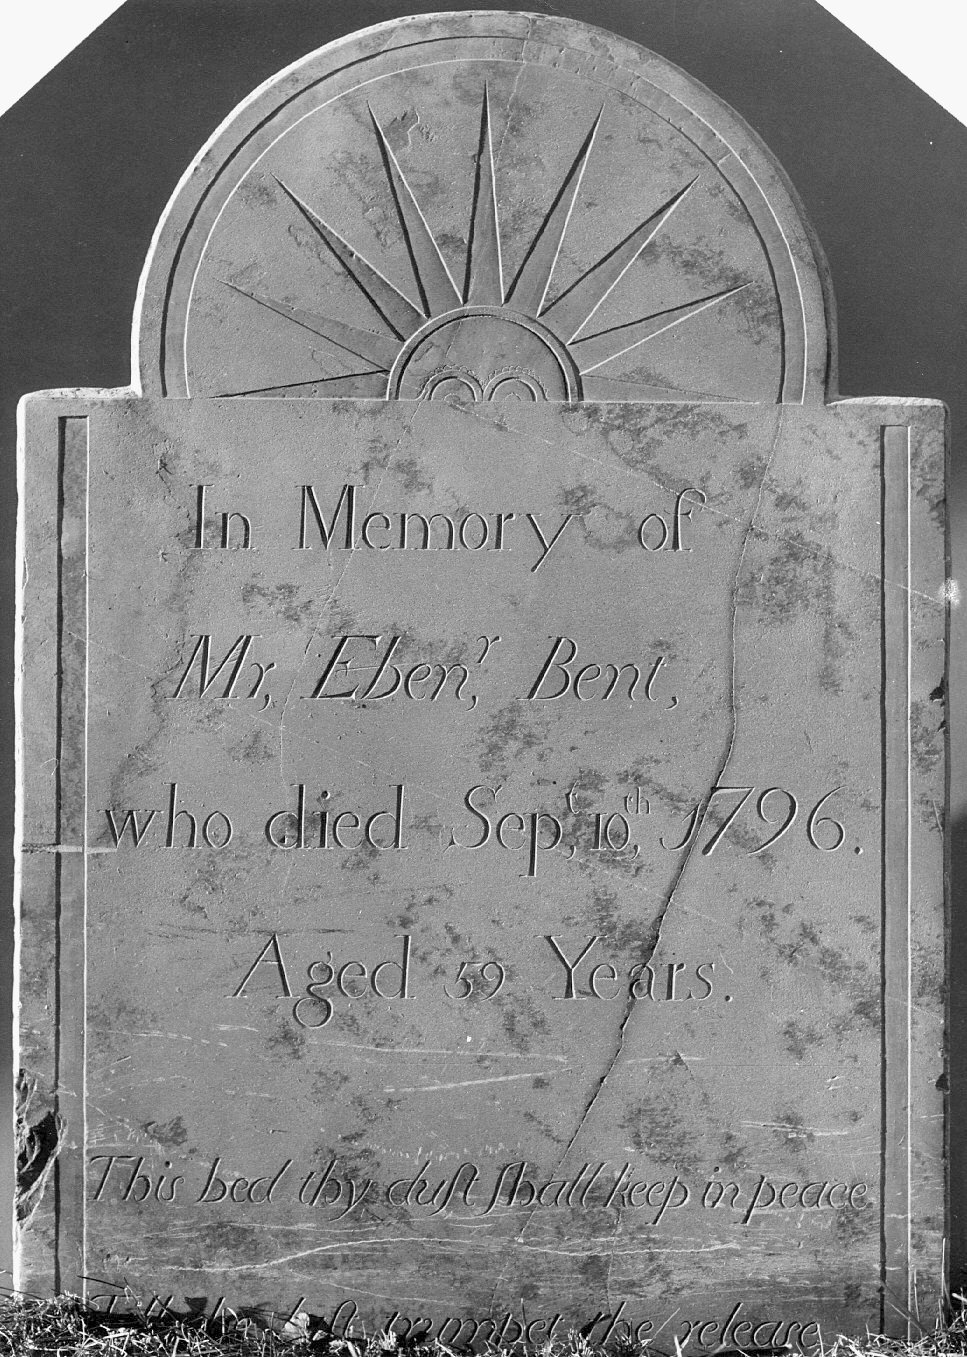 In Memory of
Mr, Ebenʳ, Bent,
who died Sepᵗ, 10ᵗʰ, 1796.
Aged 59 Years.
This bed thy duſt ſhall keep in peace
laſt trumpet the release